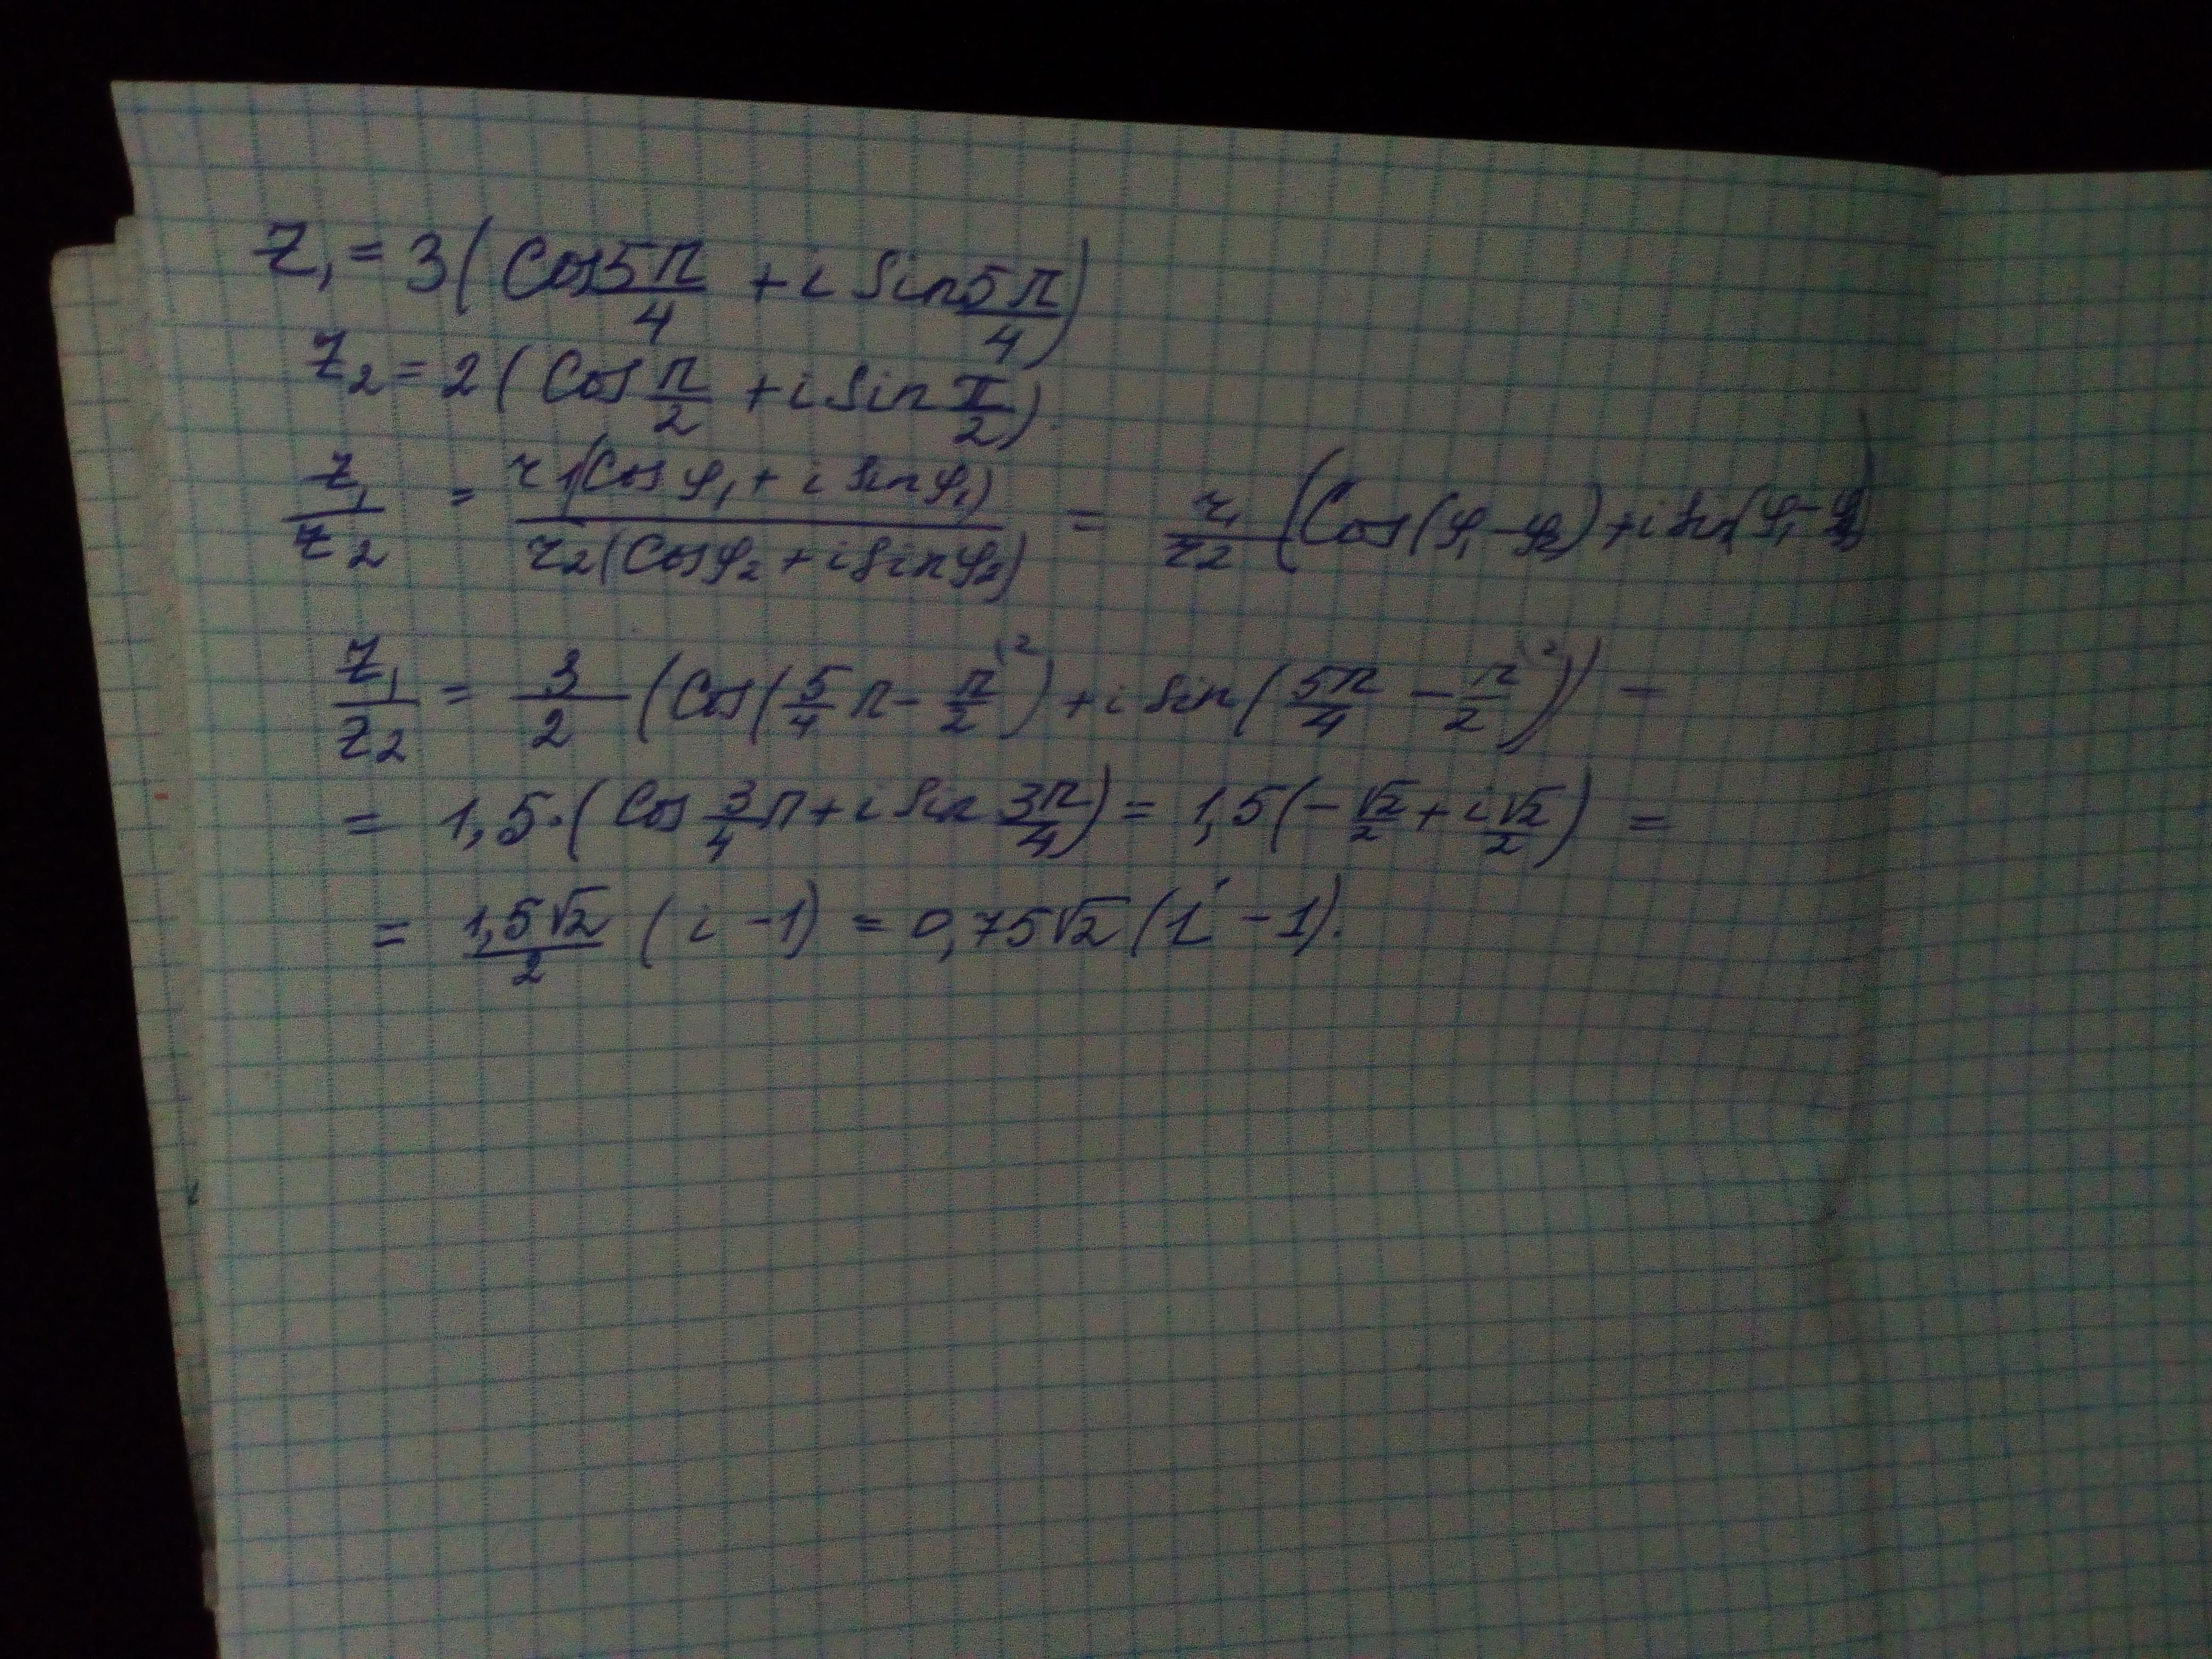 z₁ = 3(Cos 5π/4 + i Sin 5π/4)
z₂ = 2(Cos π/2 + i Sin π/2).
z₁/z₂ = r1(Cos φ₁ + i Sin φ₁)/r₂(Cos φ₂ + i Sin φ₂) = r₁/r₂ (Cos(φ₁ - φ₂) + i Sin(φ₁ - φ₂))
z₁/z₂ = 3/2 (Cos(5/4 π - π/2 \²) + i Sin(5π/4 - π/2 \²)) -
= 1,5·(Cos 3/4 π + i Sin 3π/4) = 1,5(-√2/2 + i √2/2) =
= 1,5√2/2 (i - 1) = 0,75√2 (i - 1).